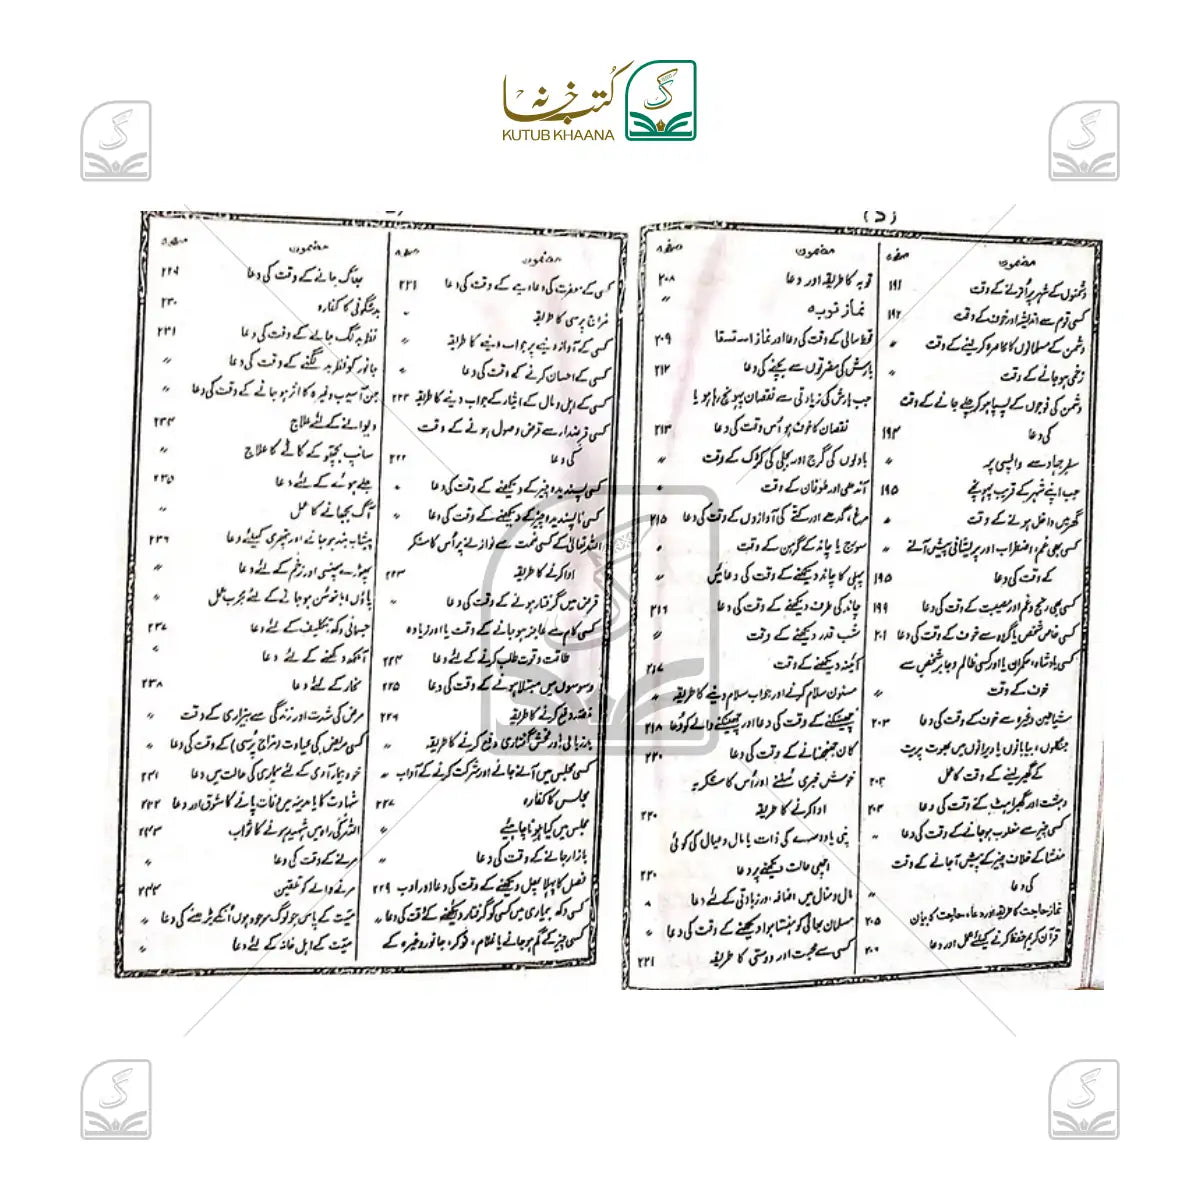 کتب خانہ
KUTUB KHAANA
مضمون صفحہ
دشمنوں کے شہر پر اُترنے کے وقت ۱۹۱
کسی قوم سے اندیشہ اور خوف کے وقت ۱۹۲
دشمن کے مسلمانوں کا محاصرہ کر لینے کے وقت 〃
زخمی ہو جانے کے وقت 〃
دشمن کی فوجوں کے پسپا ہو کر چلے جانے کے وقت
کی دعا ۱۹۳
سفر جہاد سے واپسی پر 〃
جب اپنے شہر کے قریب پہونچے ۱۹۵
گھر میں داخل ہونے کے وقت 〃
کسی بھی غم، اضطراب اور پریشانی پیش آنے 〃
کے وقت کی دعا ۱۹۵
کسی بھی رنج و غم اور مصیبت کے وقت کی دعا ۱۹۹
کسی خاص شخص یا گروہ سے خوف کے وقت کی دعا ۲۰۱
کسی بادشاہ، حکمران یا اور کسی ظالم و جابر شخص سے
خوف کے وقت 〃
شیاطین وغیرہ سے خوف کے وقت کی دعا ۲۰۳
جنگلوں، بیابانوں یا ویرانوں میں بھوت پریت
کے گھیر لینے کے وقت کا عمل ۲۰۳
دہشت اور گھبراہٹ کے وقت کی دعا ۲۰۴
کسی چیز سے مغلوب ہو جانے کے وقت کی دعا 〃
منشا کے خلاف چیز کے پیش آ جانے کے وقت
کی دعا 〃
نماز حاجت کا طریقہ اور دعاء حاجت کا بیان ۲۰۵
قرآن کریم حفظ کرنے کیلئے عمل اور دعا ۲۰۶
مضمون صفحہ
توبہ کا طریقہ اور دعا ۲۰۸
نماز توبہ 〃
قحط سالی کے وقت کی دعا اور نماز استسقا ۲۰۹
بارش کی مضرتوں سے بچنے کی دعا ۲۱۲
جب بارش کی زیادتی سے نقصان پہونچ رہا ہو یا
نقصان کا خوف ہو اُس وقت کی دعا ۲۱۳
بادلوں کی گرج اور بجلی کی کڑک کے وقت 〃
آندھی اور طوفان کے وقت 〃
مرغ، گدھے اور کتے کی آوازوں کے وقت کی دعا ۲۱۵
سورج یا چاند کے گرہن کے وقت 〃
پہلی کا چاند دیکھنے کے وقت کی دعائیں 〃
چاند کی طرف دیکھنے کے وقت کی دعا ۲۱۶
شب قدر دیکھنے کے وقت 〃
آئینہ دیکھنے کے وقت ۲۱۷
مسنون سلام کرنے اور جواب سلام دینے کا طریقہ 〃
چھینکنے کے وقت کی دعا اور چھینکنے والے کو دُعا ۲۱۸
کان جھنجھنانے کے وقت کی دعا ۲۲۰
خوش خبری سُننے اور اُس کا شکریہ
ادا کرنے کا طریقہ ۲۲۰
اپنی یا دوسرے کی ذات یا مال و عیال کی کوئی
اچھی حالت دیکھنے پر دعا ۲۲۰
مال و منال میں اضافہ اور زیادتی کے لئے دعا 〃
مسلمان بھائی کو ہنستا ہوا دیکھنے کے وقت کی دعا 〃
کسی سے محبت اور دوستی کا طریقہ ۲۲۱
مضمون صفحہ
کسی کے مغفرت کی دعا دینے کے وقت کی دعا ۲۲۱
مزاج پرسی کا طریقہ 〃
کسی کے آواز دینے پر جواب دینے کا طریقہ 〃
کسی کے احسان کرنے کے وقت کی دعا 〃
کسی کے اہل و مال کے ایثار کے جواب دینے کا طریقہ ۲۲۲
کسی قرضدار سے قرض وصول ہونے کے وقت
کی دعا ۲۲۲
کسی پسندیدہ چیز کے دیکھنے کے وقت کی دعا 〃
کسی ناپسندیدہ چیز کے دیکھنے کے وقت کی دعا 〃
اللہ تعالیٰ کے کسی نعمت سے نوازنے پر اُس کا شکر
ادا کرنے کا طریقہ ۲۲۳
قرض میں گرفتار ہونے کے وقت کی دعا 〃
کسی کام سے عاجز ہو جانے کے وقت یا اور زیادہ
طاقت و قوت طلب کرنے کے لئے دعا ۲۲۴
وسوسوں میں مبتلا ہونے کے وقت کی دعا ۲۲۵
غصہ دفع کرنے کا طریقہ ۲۲۶
بدزبانی اور فحش گفتاری دفع کرنے کا طریقہ 〃
کسی مجلس میں آنے جانے اور شرکت کرنے کے آداب 〃
مجلس کا کفارہ ۲۲۷
مجلس میں کیا ہونا چاہیئے 〃
بازار جانے کے وقت کی دعا 〃
فصل کا پہلا پھل دیکھنے کے وقت کی دعا اور ادب ۲۲۹
کسی دکھ، بیماری میں کسی کو گرفتار دیکھنے کے وقت کی دعا 〃
کسی چیز کے گم ہو جانے یا غلام، نوکر، جانور وغیرہ کے
مضمون صفحہ
بھاگ جانے کے وقت کی دعا ۲۲۹
بدشگونی کا کفارہ ۲۳۰
نظر بد لگ جانے کے وقت کی دعا ۲۳۱
جانور کو نظر بد لگنے کے وقت کی دعا 〃
جن آسیب وغیرہ کا اثر ہو جانے کے وقت کی دعا 〃
دیوانے کے لئے علاج ۲۳۴
سانپ بچھو کے کاٹے کا علاج 〃
جلے ہوئے کے لئے دعا ۲۳۵
آگ بجھانے کا عمل 〃
پیشاب بند ہو جانے اور پتھری کیلئے دعا ۲۳۶
پھوڑے پھنسی اور زخم کے لئے دعا 〃
پاؤں، ہاتھ سُن ہو جانے کے لئے مجرب عمل 〃
جسمانی دکھ تکلیف کے لئے دعا ۲۳۷
آنکھ دکھنے کے لئے دعا 〃
بخار کے لئے دعا ۲۳۸
مرض کی شدت اور زندگی سے بیزاری کے وقت 〃
کسی مریض کی عیادت (مزاج پرسی) کے وقت کی دعا 〃
خود بیمار آدمی کے لئے بیماری کی حالت میں دعا ۲۴۱
شہادت کا یا مدینہ میں وفات پانے کا شوق اور دعا ۲۴۲
اللہ کی راہ میں شہید ہونے کا ثواب ۲۴۳
مرنے کے وقت کی دعا 〃
مرنے والے کو تلقین ۲۴۴
میت کے پاس جو لوگ موجود ہوں اُنکے پڑھنے کی دعا 〃
میت کے اہل خانہ کے لئے دعا 〃